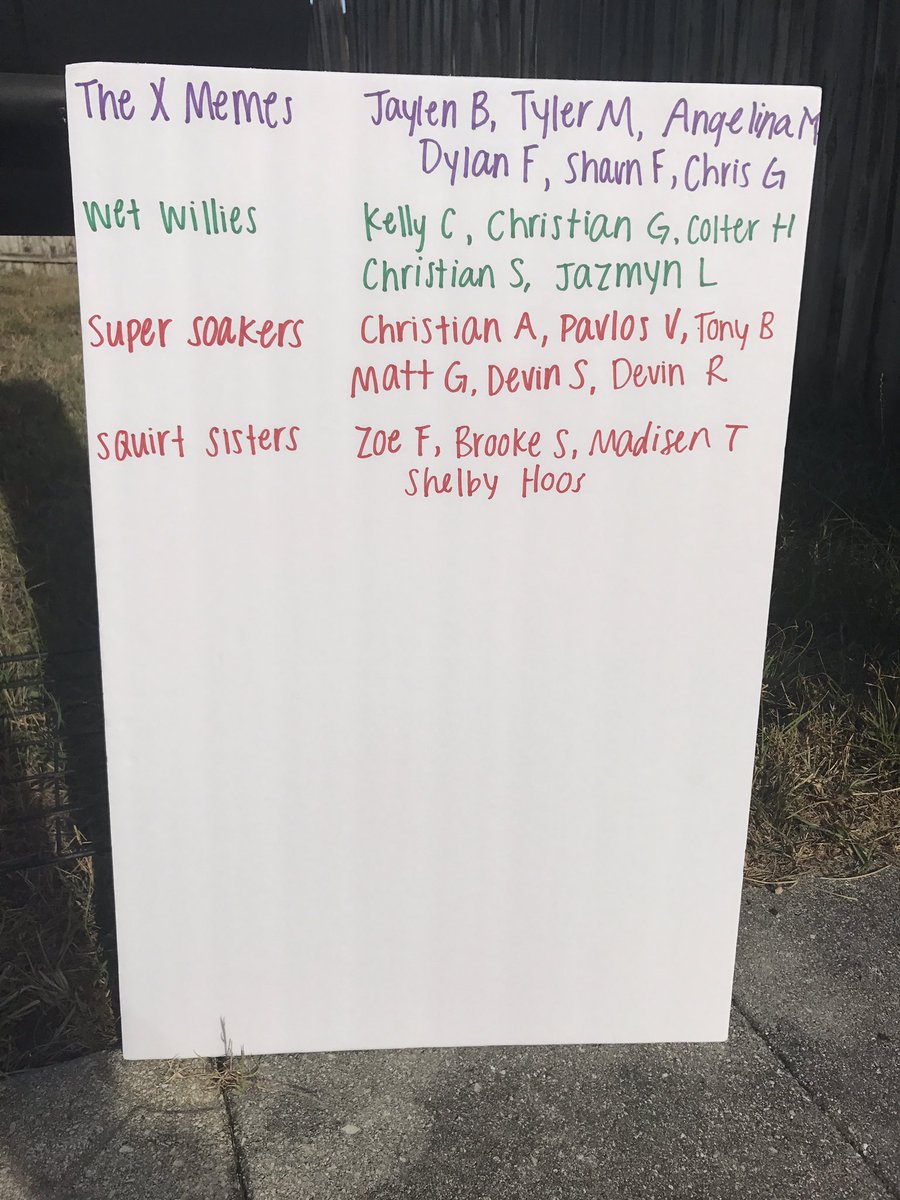 The X Memes Jaylen B, Tyler M, Angelina M
Dylan F, Shaun F, Chris G
Wet Willies Kelly C, Christian G, Colter H
Christian S, Jazmyn L
Super Soakers Christian A, Pavlos V, Tony B
Matt G, Devin S, Devin R
Squirt Sisters Zoe F, Brooke S, Madisen T
Shelby Hoos